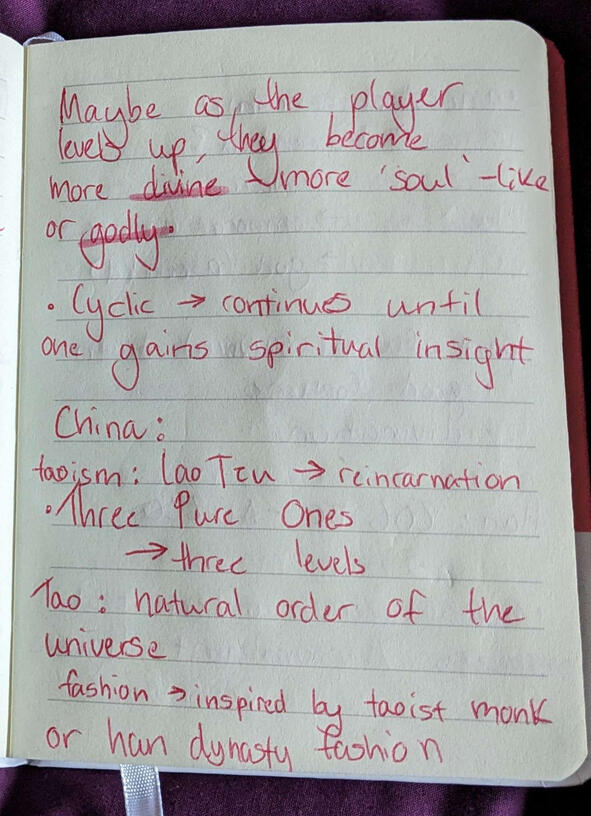 Maybe as the player
levels up, they become
more divine more 'soul'-like
or godly.
• Cyclic → continues until
one gains spiritual insight
China:
taoism: Lao Tzu → reincarnation
• Three Pure Ones
→ three levels
Tao: natural order of the
universe
fashion → inspired by taoist monk
or han dynasty fashion